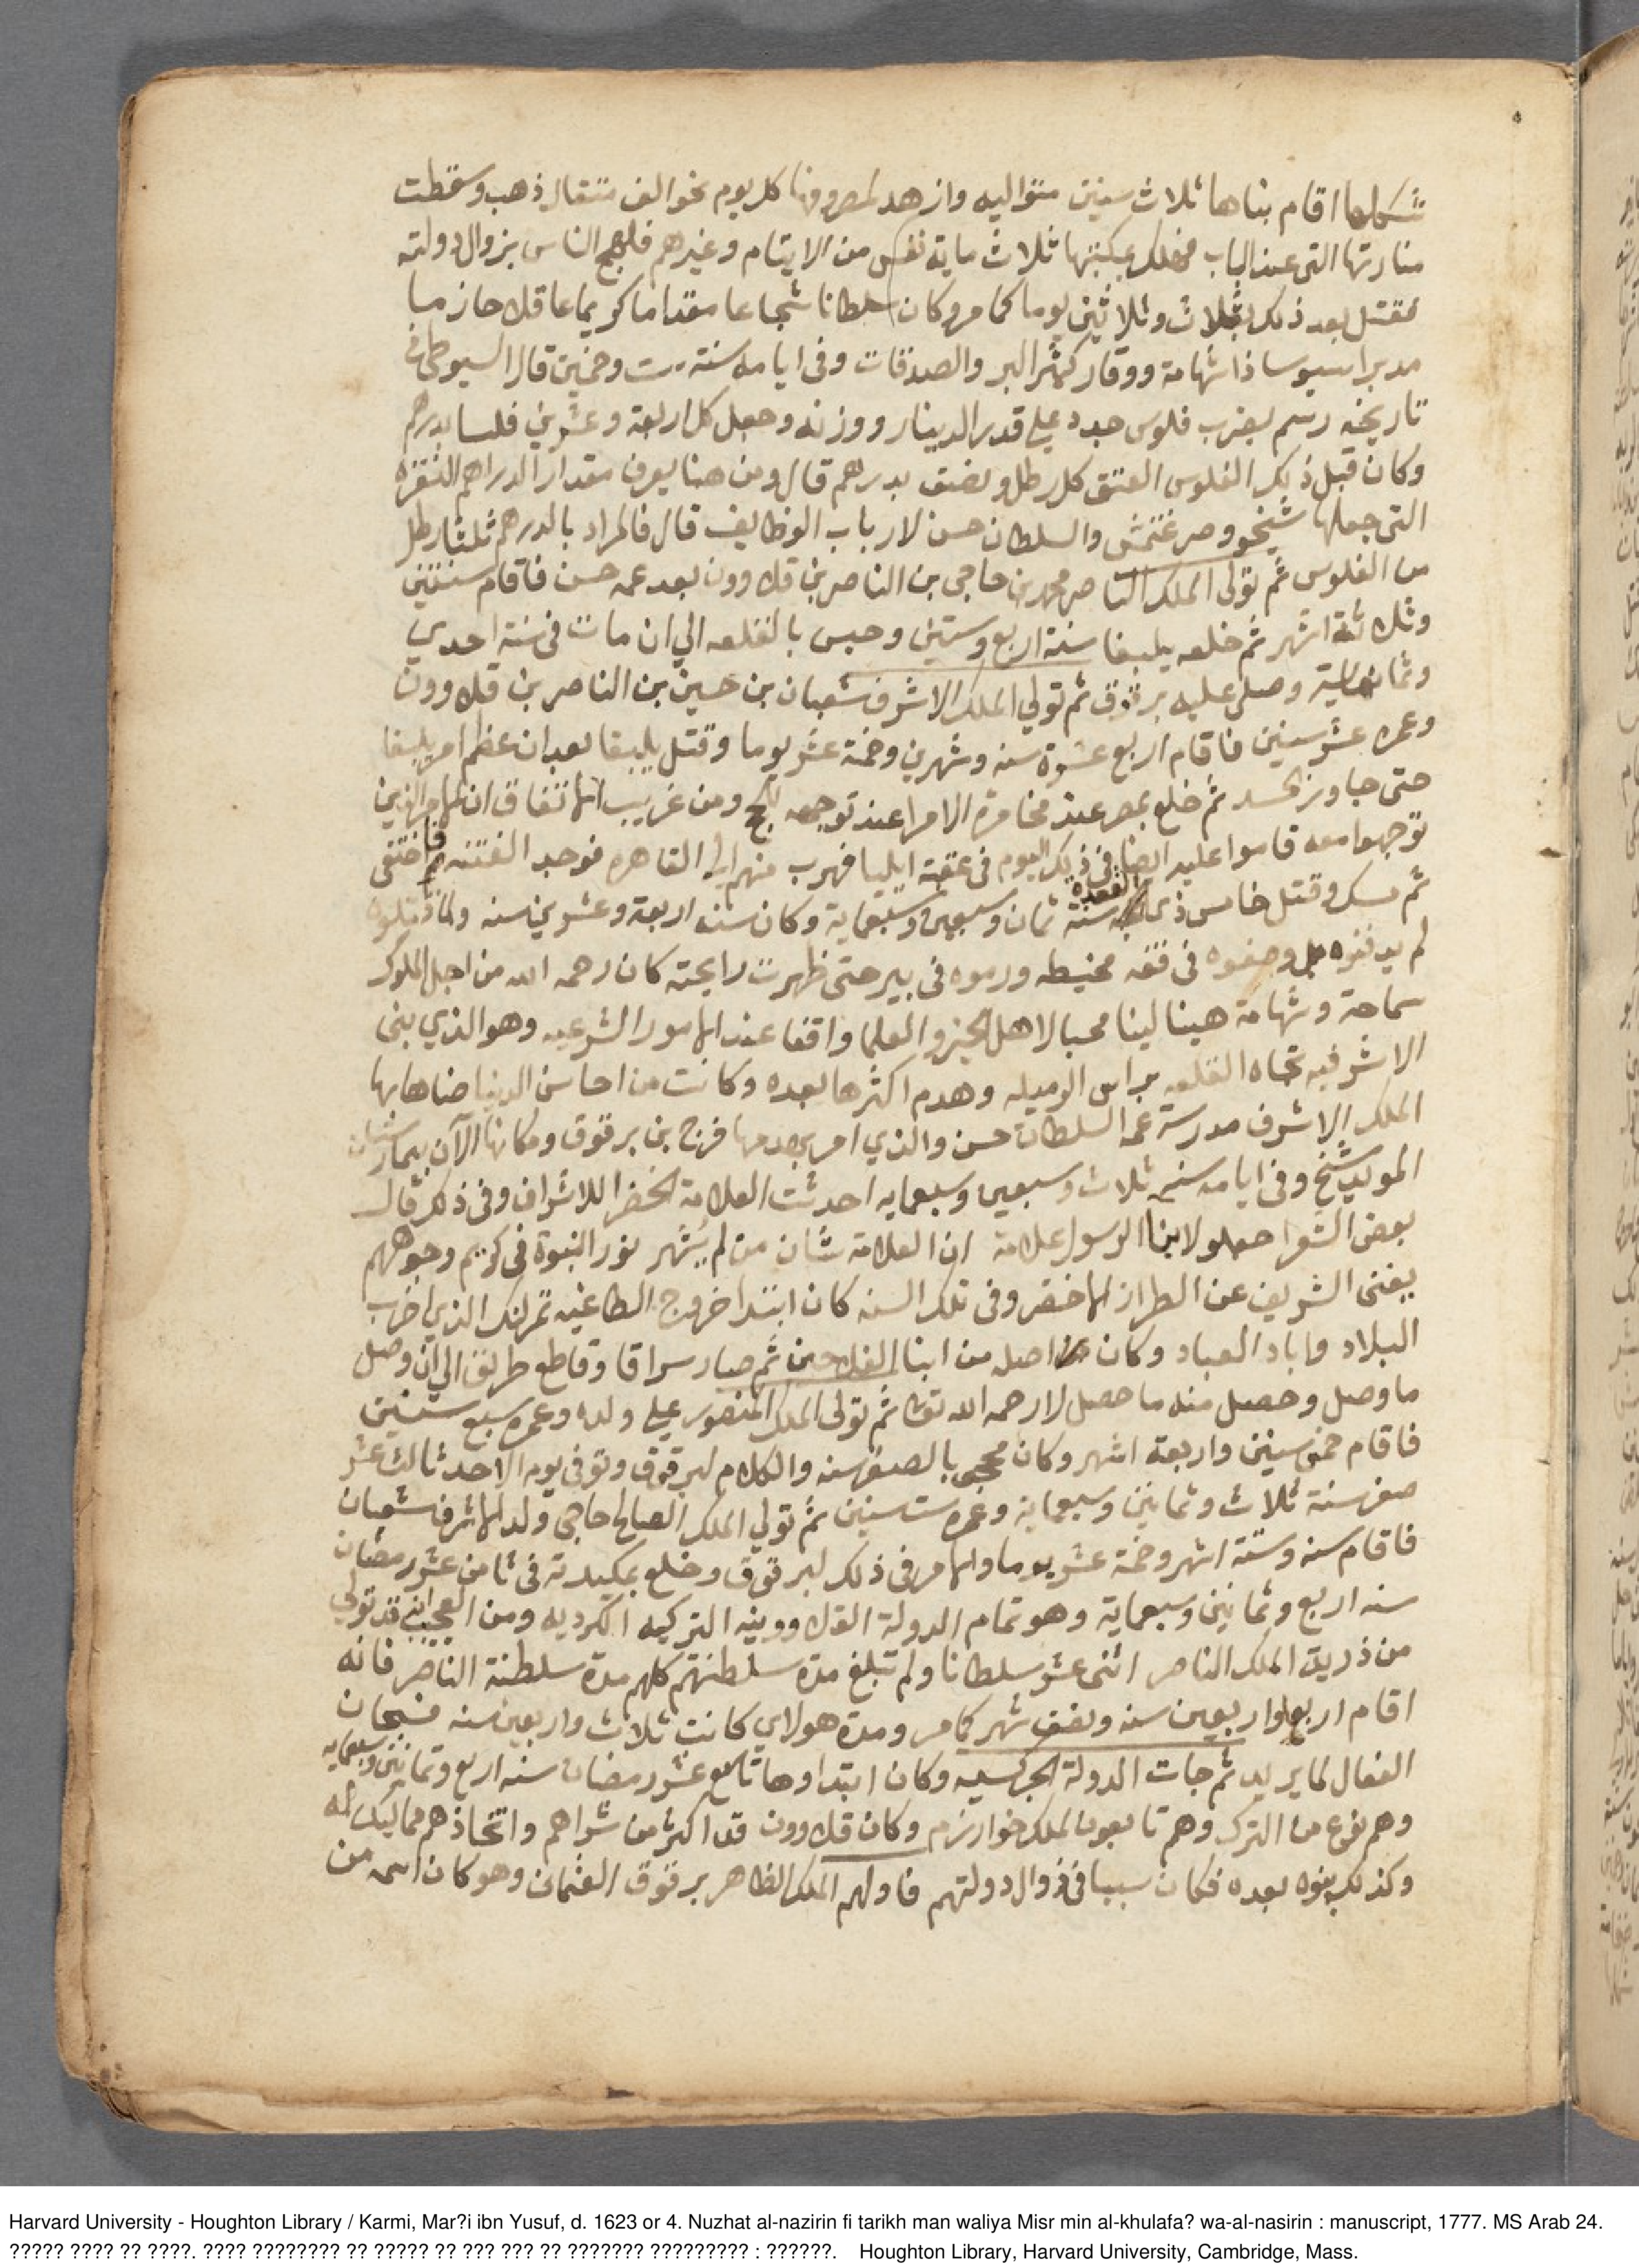 شكلها اقام بناها ثلاث سنين متواليه وارصد لمصروفها كل يوم نحو الف مثقال ذهب وسقطت
منارتها التي عند الباب فهلك بسببها ثلاث ماية نفس من الايتام وغيرهم فلهج الناس بزوال دولته
فقتل بعد ذلك بثلاث وثلاثين يوما كما مر وكان سلطانا شجاعا مقداما كريما عاقلا حازما
مدبرا سيوسا ذا شهامة ووقار كثير البر والصدقات وفي ايامه سنة ست وخمسين قال السيوطي في
تاريخه رسم بضرب فلوس جدد علي قدر الدينار ووزنه وجعل كل اربعة وعشرين فلسا بدرهم
وكان قبل ذلك الفلوس العتق كل رطل ونصف بدرهم قال ومن هنا يعرف مقدار الدراهم النقره
التي جعلها شيخو وصرغتمش والسلطان حسن لارباب الوظايف قال فالمراد بالدرهم ثلثا رطل
من الفلوس ثم تولى الملك الناصر محمد بن حاجي بن الناصر بن قلاوون بعد عمه حسن فاقام سنتين
وثلاثة اشهر ثم خلعه يلبغا سنة اربع وستين وحبس بالقلعه الي ان مات في سنة احدي
وثمانماية وصلى عليه برقوق ثم تولي الملك الاشرف شعبان بن حسين بن الناصر بن قلاوون
وعمره عشر سنين فاقام اربع عشرة سنه وشهرين وخمسة عشر يوما وقتل يلبغا بعد ان عظم امر يلبغا
حتى جاوز الحد ثم خلع بمصر عند مخامرة الامرا عند توجهه للحج ومن غريب الاتفاق ان الامرا الذين
توجهوا معه قاموا عليه ايضا في ذلك اليوم في عقبة ايليا فهرب منهم الي القاهره فوجد الفتنه فاختفى
ثم مسك وقتل خامس ذي القعده سنة ثمان وسبعين وسبعماية وكان سنه اربعة وعشرين سنه ولما قتلوه
لم يدفنوه بل وضعوه في قفه مخيطه ورموه في بير حتى ظهرت رايحته كان رحمه الله من اجل الملوك
سماحة وشهامة هينا لينا محبا لاهل الخير والعلما واقفا عند الامور الشرعيه وهو الذي بنى
الاشرفيه تجاه القلعه براس الرميله وهدم اكثرها بعده وكانت من احاسن الدنيا ضاها بها
الملك الاشرف مدرسة عمه السلطان حسن والذي امر بهدمها فرج بن برقوق ومكانها الآن بيمارستان
المويد شيخ وفي ايامه سنة ثلاث وسبعين وسبعمايه احدثت العلامة الخضرا للاشراف وفي ذلك قال
بعض الشعرا جعلوا لابنا الرسول علامة ان العلامة شان من لم يشهر نور النبوة في كريم وجوههم
يغني الشريف عن الطراز الاخضر وفي تلك السنه كان ابتدا خروج الطاغيه تمرلنك الذي اخرب
البلاد واباد العباد وكان اصله من ابنا الفلاحين ثم صار سراقا وقاطع طريق الي ان وصل
ما وصل وحصل منه ما حصل لا رحمه الله تعالى ثم تولى الملك المنصور علي ولده وعمره سبع سنين
فاقام خمس سنين واربعة اشهر وكان محجر بالصغر سنه والكلام لبرقوق وتوفي يوم الاحد ثالث عشر
صفر سنة ثلاث وثمانين وسبعماية وعمره ست سنين ثم تولي الملك الصالح حاجي ولد الاشرف شعبان
فاقام سنه وستة اشهر وخمسة عشر يوما والامر في ذلك لبرقوق وخلع بمكيدته في ثامن عشر رمضان
سنه اربع وثمانين وسبعماية وهو تمام الدولة القلاوونيه التركيه الكرديه ومن العجب انه قد تولي
من ذرية الملك الناصر اثنى عشر سلطانا ولم تبلغ مدة سلطنتهم كلهم مدة سلطنة الناصر فانه
اقام اربعا واربعين سنه ونصف شهر كما مر ومدة هولاي كانت ثلاث واربعين سنه فسبحان
الفعال لما يريد ثم جات الدولة الجركسيه وكان ابتداوها تاسع عشر رمضان سنه اربع وثمانين وسبعمايه
وهم نوع من الترك وهم تابعون لملك خوارزم وكان قلاوون قد اكثر من شراهم واتخاذهم مماليك له
وكذلك بنوه بعده فكان سببا في زوال دولتهم فاولهم الملك الظاهر برقوق العثماني وهو كان اسمه من
Harvard University - Houghton Library / Karmi, Mar?i ibn Yusuf, d. 1623 or 4. Nuzhat al-nazirin fi tarikh man waliya Misr min al-khulafa? wa-al-nasirin : manuscript, 1777. MS Arab 24.
????? ???? ?? ????. ???? ???????? ?? ????? ?? ??? ??? ?? ??????? ????????? : ??????. Houghton Library, Harvard University, Cambridge, Mass.